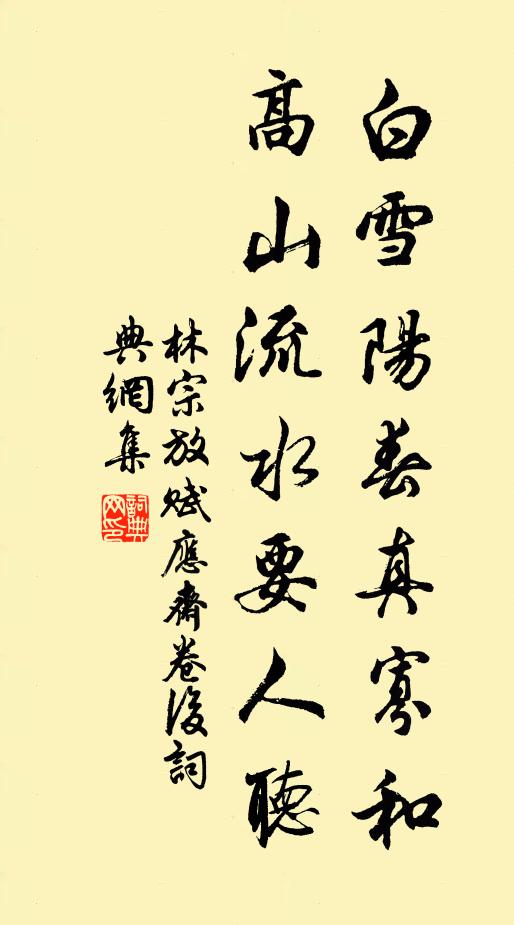 白雪陽春真寡和
高山流水要人聽
林宗放賦應齋卷後詞
典網集
詞典網印